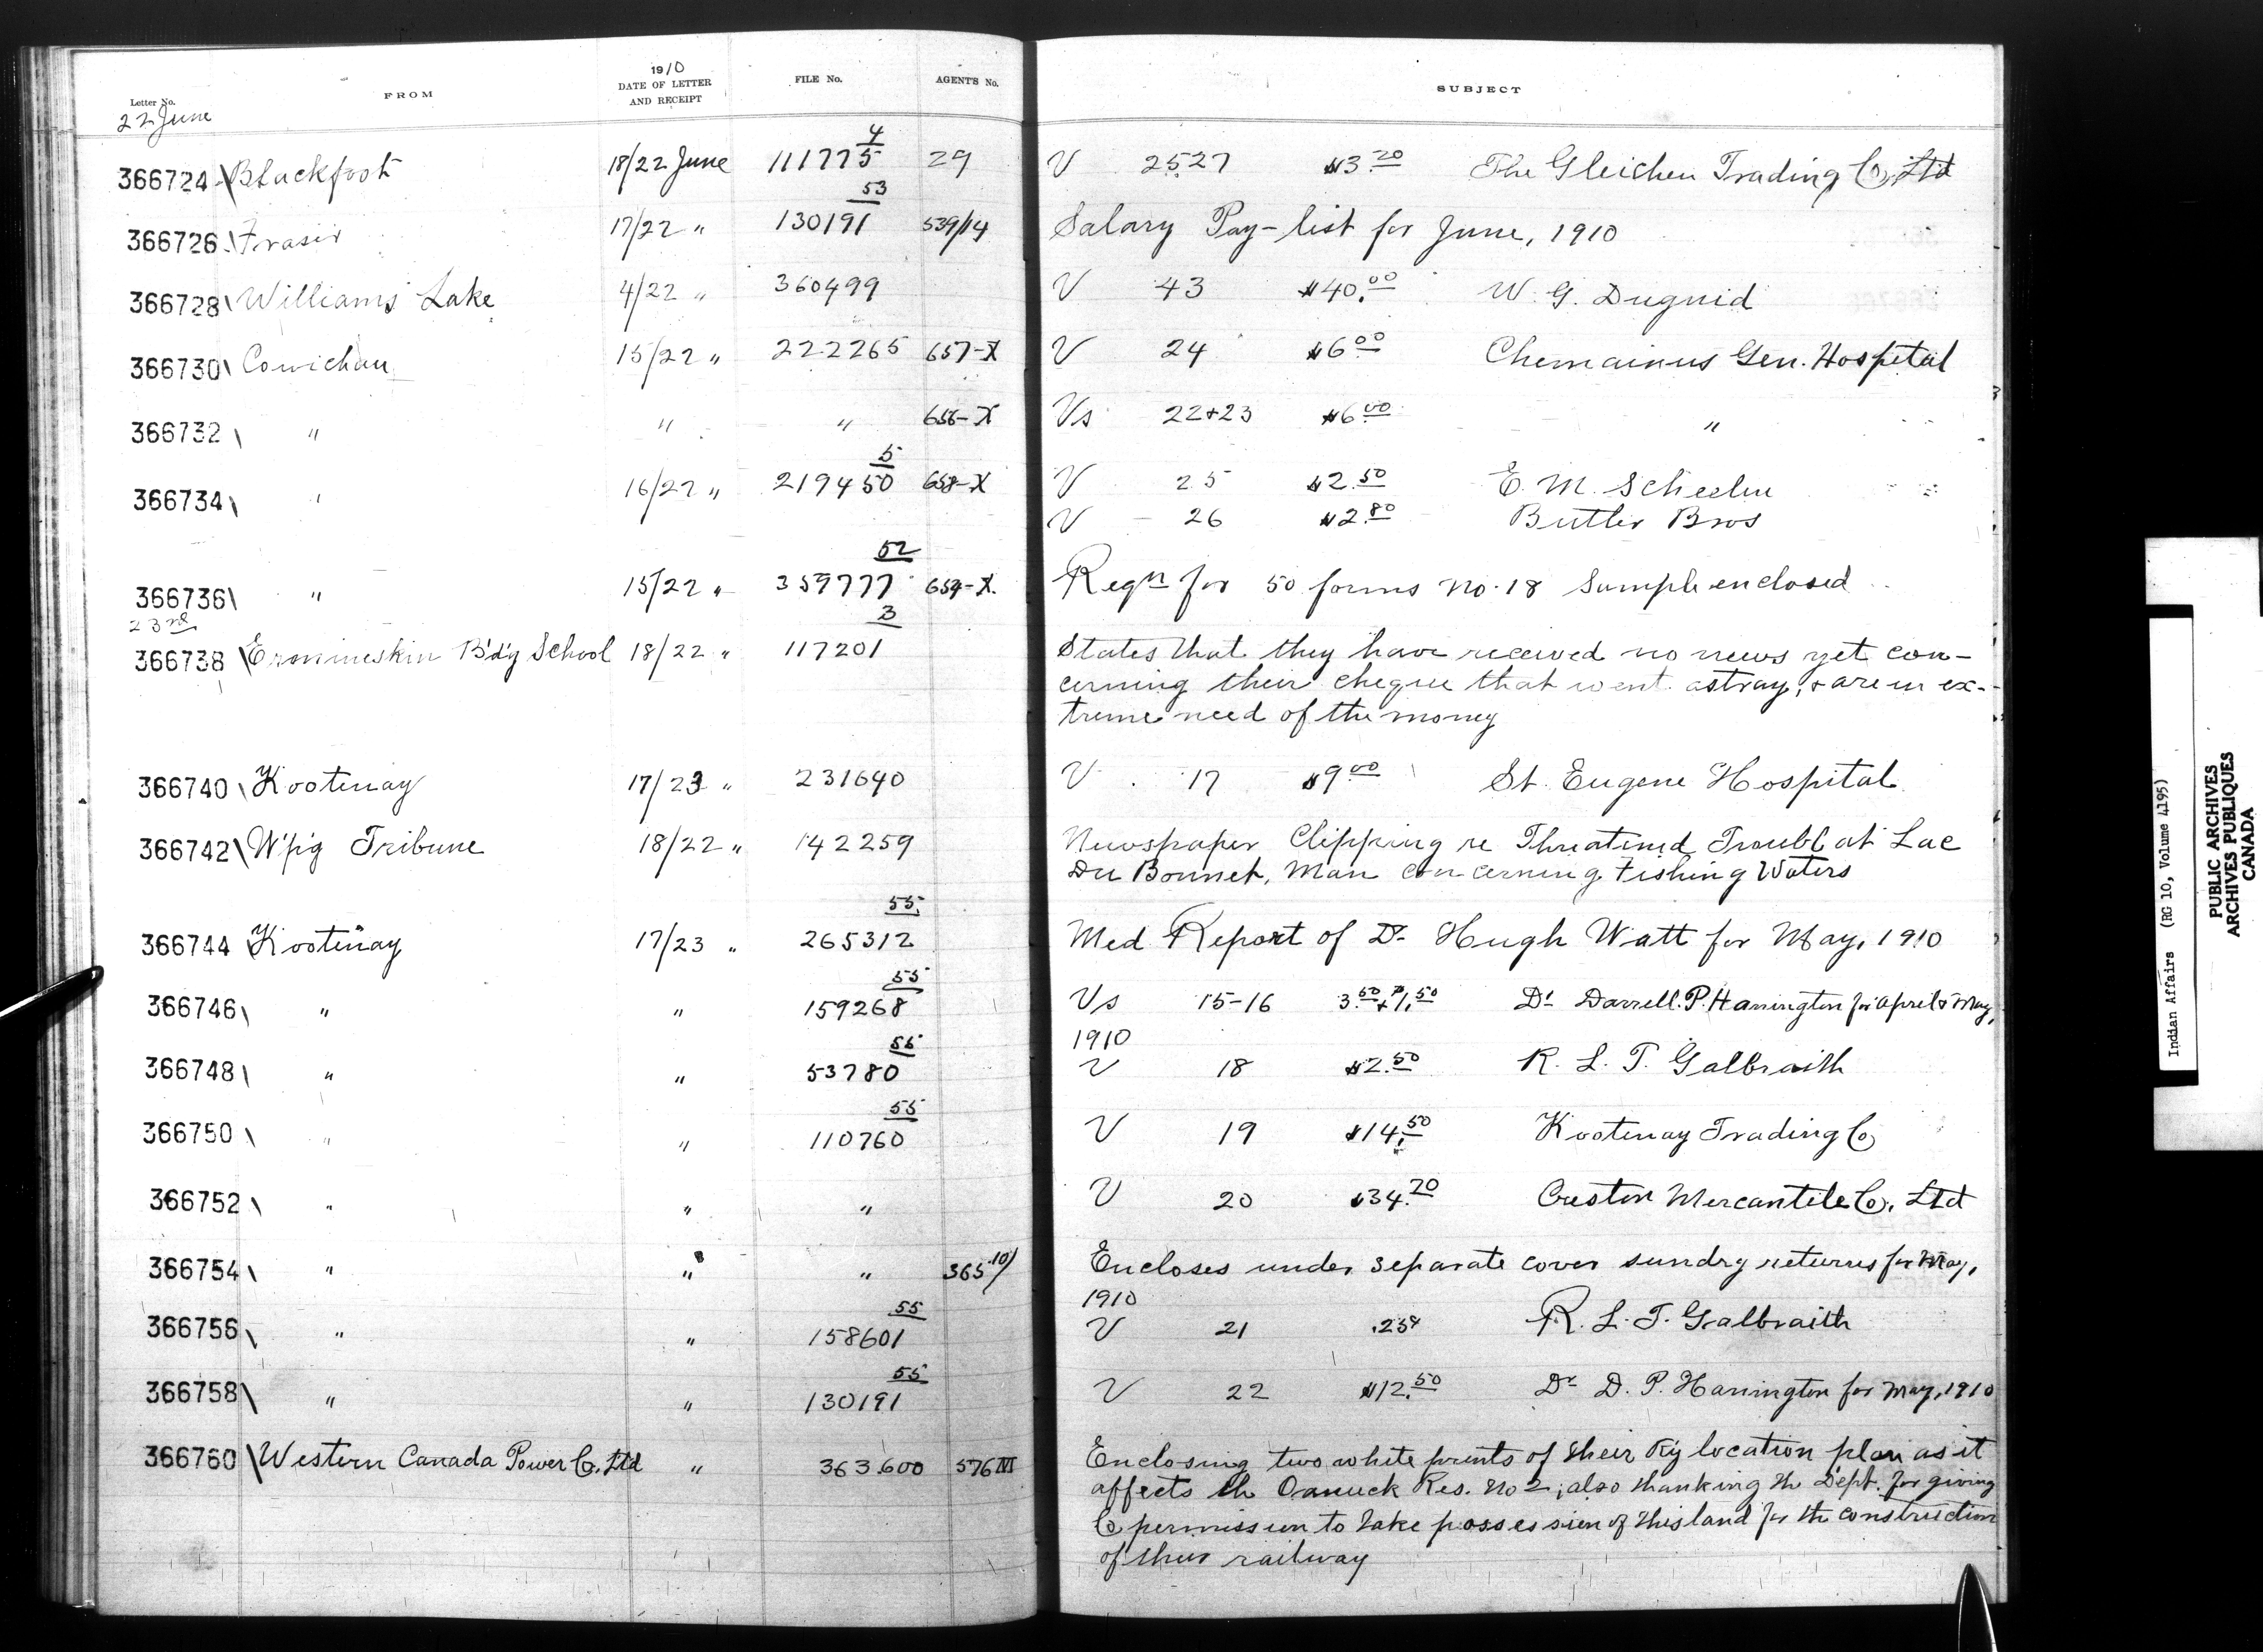 Letter No. FROM 1910 DATE OF LETTER AND RECEIPT FILE No. AGENT'S No. SUBJECT
22 June
366724 Blackfoot 18/22 June 111775 4 29 V 2527 $3.20 The Gleichen Trading Co. Ltd
366726 Fraser 17/22 " 130191 53 539/14 Salary Pay-list for June, 1910
366728 Williams Lake 4/22 " 360499 V 43 $40.00 W. G. Duguid
366730 Cowichan 15/22 " 222265 657-X V 24 $6.00 Chemainus Gen. Hospital
366732 " " " 656-X Vs 22+23 $6.00 "
366734 " 16/22 " 219450 5 658-X V 25 $2.50 E. M. Scheelen
V 26 $2.80 Butler Bros
366736 " 15/22 " 359777 52 659-X. Reqn for 50 forms No. 18 Sample enclosed
23rd
366738 Ermineskin B'd'g School 18/22 " 117201 3 States that they have received no news yet con-
cerning their cheque that went astray, & are in ex-
treme need of the money
366740 Kootenay 17/23 " 231640 V 17 $9.00 St. Eugene Hospital
366742 W'pg Tribune 18/22 " 142259 Newspaper Clipping re Threatened Troubl at Lac
Du Bonnet, Man concerning Fishing Waters
366744 Kootenay 17/23 " 265312 55 Med Report of Dr Hugh Watt for May, 1910
366746 " " 159268 55 Vs 15-16 3.50 + 71.50 Dr Darrell. P. Hanington for April & May,
1910
366748 " " 53780 55 V 18 $2.50 R. L. T. Galbraith
366750 " " 110760 55 V 19 $14.50 Kootenay Trading Co
366752 " " " V 20 $34.70 Creston Mercantile Co. Ltd
366754 " " " 365 10/ Encloses under separate cover sundry returns for May,
1910
366756 " " 158601 55 V 21 .25¢ R. L. T. Galbraith
366758 " " 130191 55 V 22 $12.50 Dr D. P. Hanington for May, 1910
366760 Western Canada Power Co. Ltd " 363600 576 III Enclosing two white prints of their R'y location plan as it
affects th Oanuck Res. No 2; also thanking th Dept. for giving
Co permission to take possession of this land for th construction
of their railway
Indian Affairs (RG 10, Volume 4195)
PUBLIC ARCHIVES
ARCHIVES PUBLIQUES
CANADA